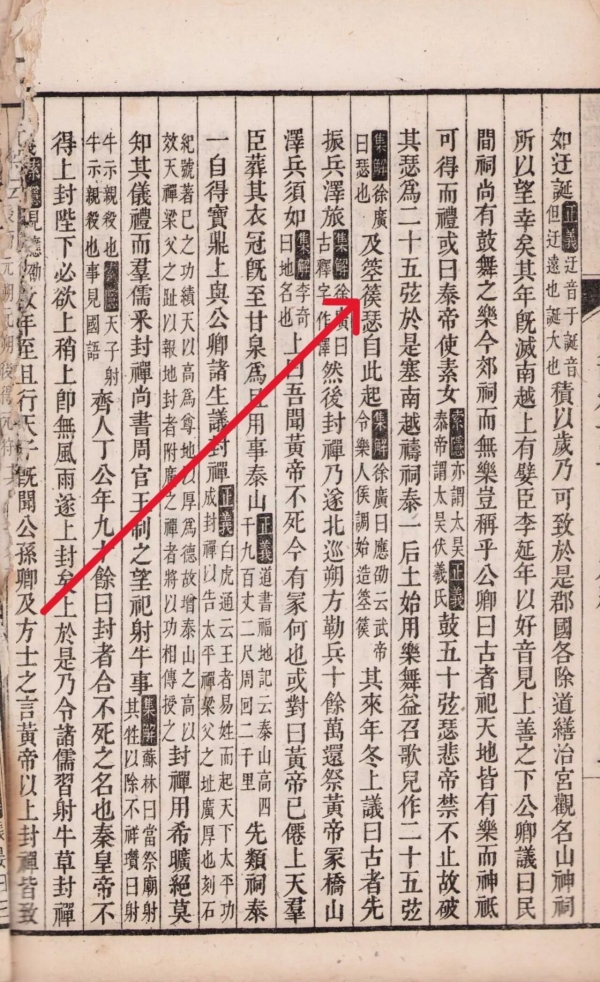 如迂誕正義迂音于誕音但迂遠也誕大也積以歲乃可致於是郡國各除道繕治宮觀名山神祠
所以望幸矣其年既滅南越上有嬖臣李延年以好音見上善之下公卿議曰民
間祠尚有鼓舞之樂今郊祠而無樂豈稱乎公卿曰古者祀天地皆有樂而神祇
可得而禮或曰泰帝使素女索隱亦謂太昊正義泰帝謂太昊伏羲氏鼓五十弦瑟悲帝禁不止故破
其瑟爲二十五弦於是塞南越禱祠泰一后土始用樂舞益召歌兒作二十五弦
集解徐廣曰瑟也及箜篌瑟自此起集解徐廣曰應劭云武帝令樂人侯調始造箜篌其來年冬上議曰古者先
振兵澤旅集解徐廣曰古釋字作澤然後封禪乃遂北巡朔方勒兵十餘萬還祭黃帝冢橋山
澤兵須如集解李奇曰地名也上曰吾聞黃帝不死今有冢何也或對曰黃帝已僊上天羣
臣葬其衣冠既至甘泉爲且用事泰山正義道書福地記云泰山高四千九百丈二尺周回二千里先類祠泰
一自得寶鼎上與公卿諸生議封禪正義白虎通云王者易姓而起天下太平功成封禪以告太平禪梁父之址廣厚也刻石
紀號著己之功績天以高爲尊地以厚爲德故增泰山之高以效天禪梁父之趾以報地封者附廣之禪者將以功相傳授之封禪用希曠絕莫
知其儀禮而羣儒采封禪尚書周官王制之望祀射牛事集解蘇林曰當祭廟射其牲以除不祥瓚曰射
牛示親殺也索隱天子射牛示親殺也事見國語齊人丁公年九十餘曰封者合不死之名也秦皇帝不
得上封陛下必欲上稍上卽無風雨遂上封矣上於是乃令諸儒習射牛草封禪
索隱見應劭數年至且行天子既聞公孫卿及方士之言黃帝以上封禪皆致